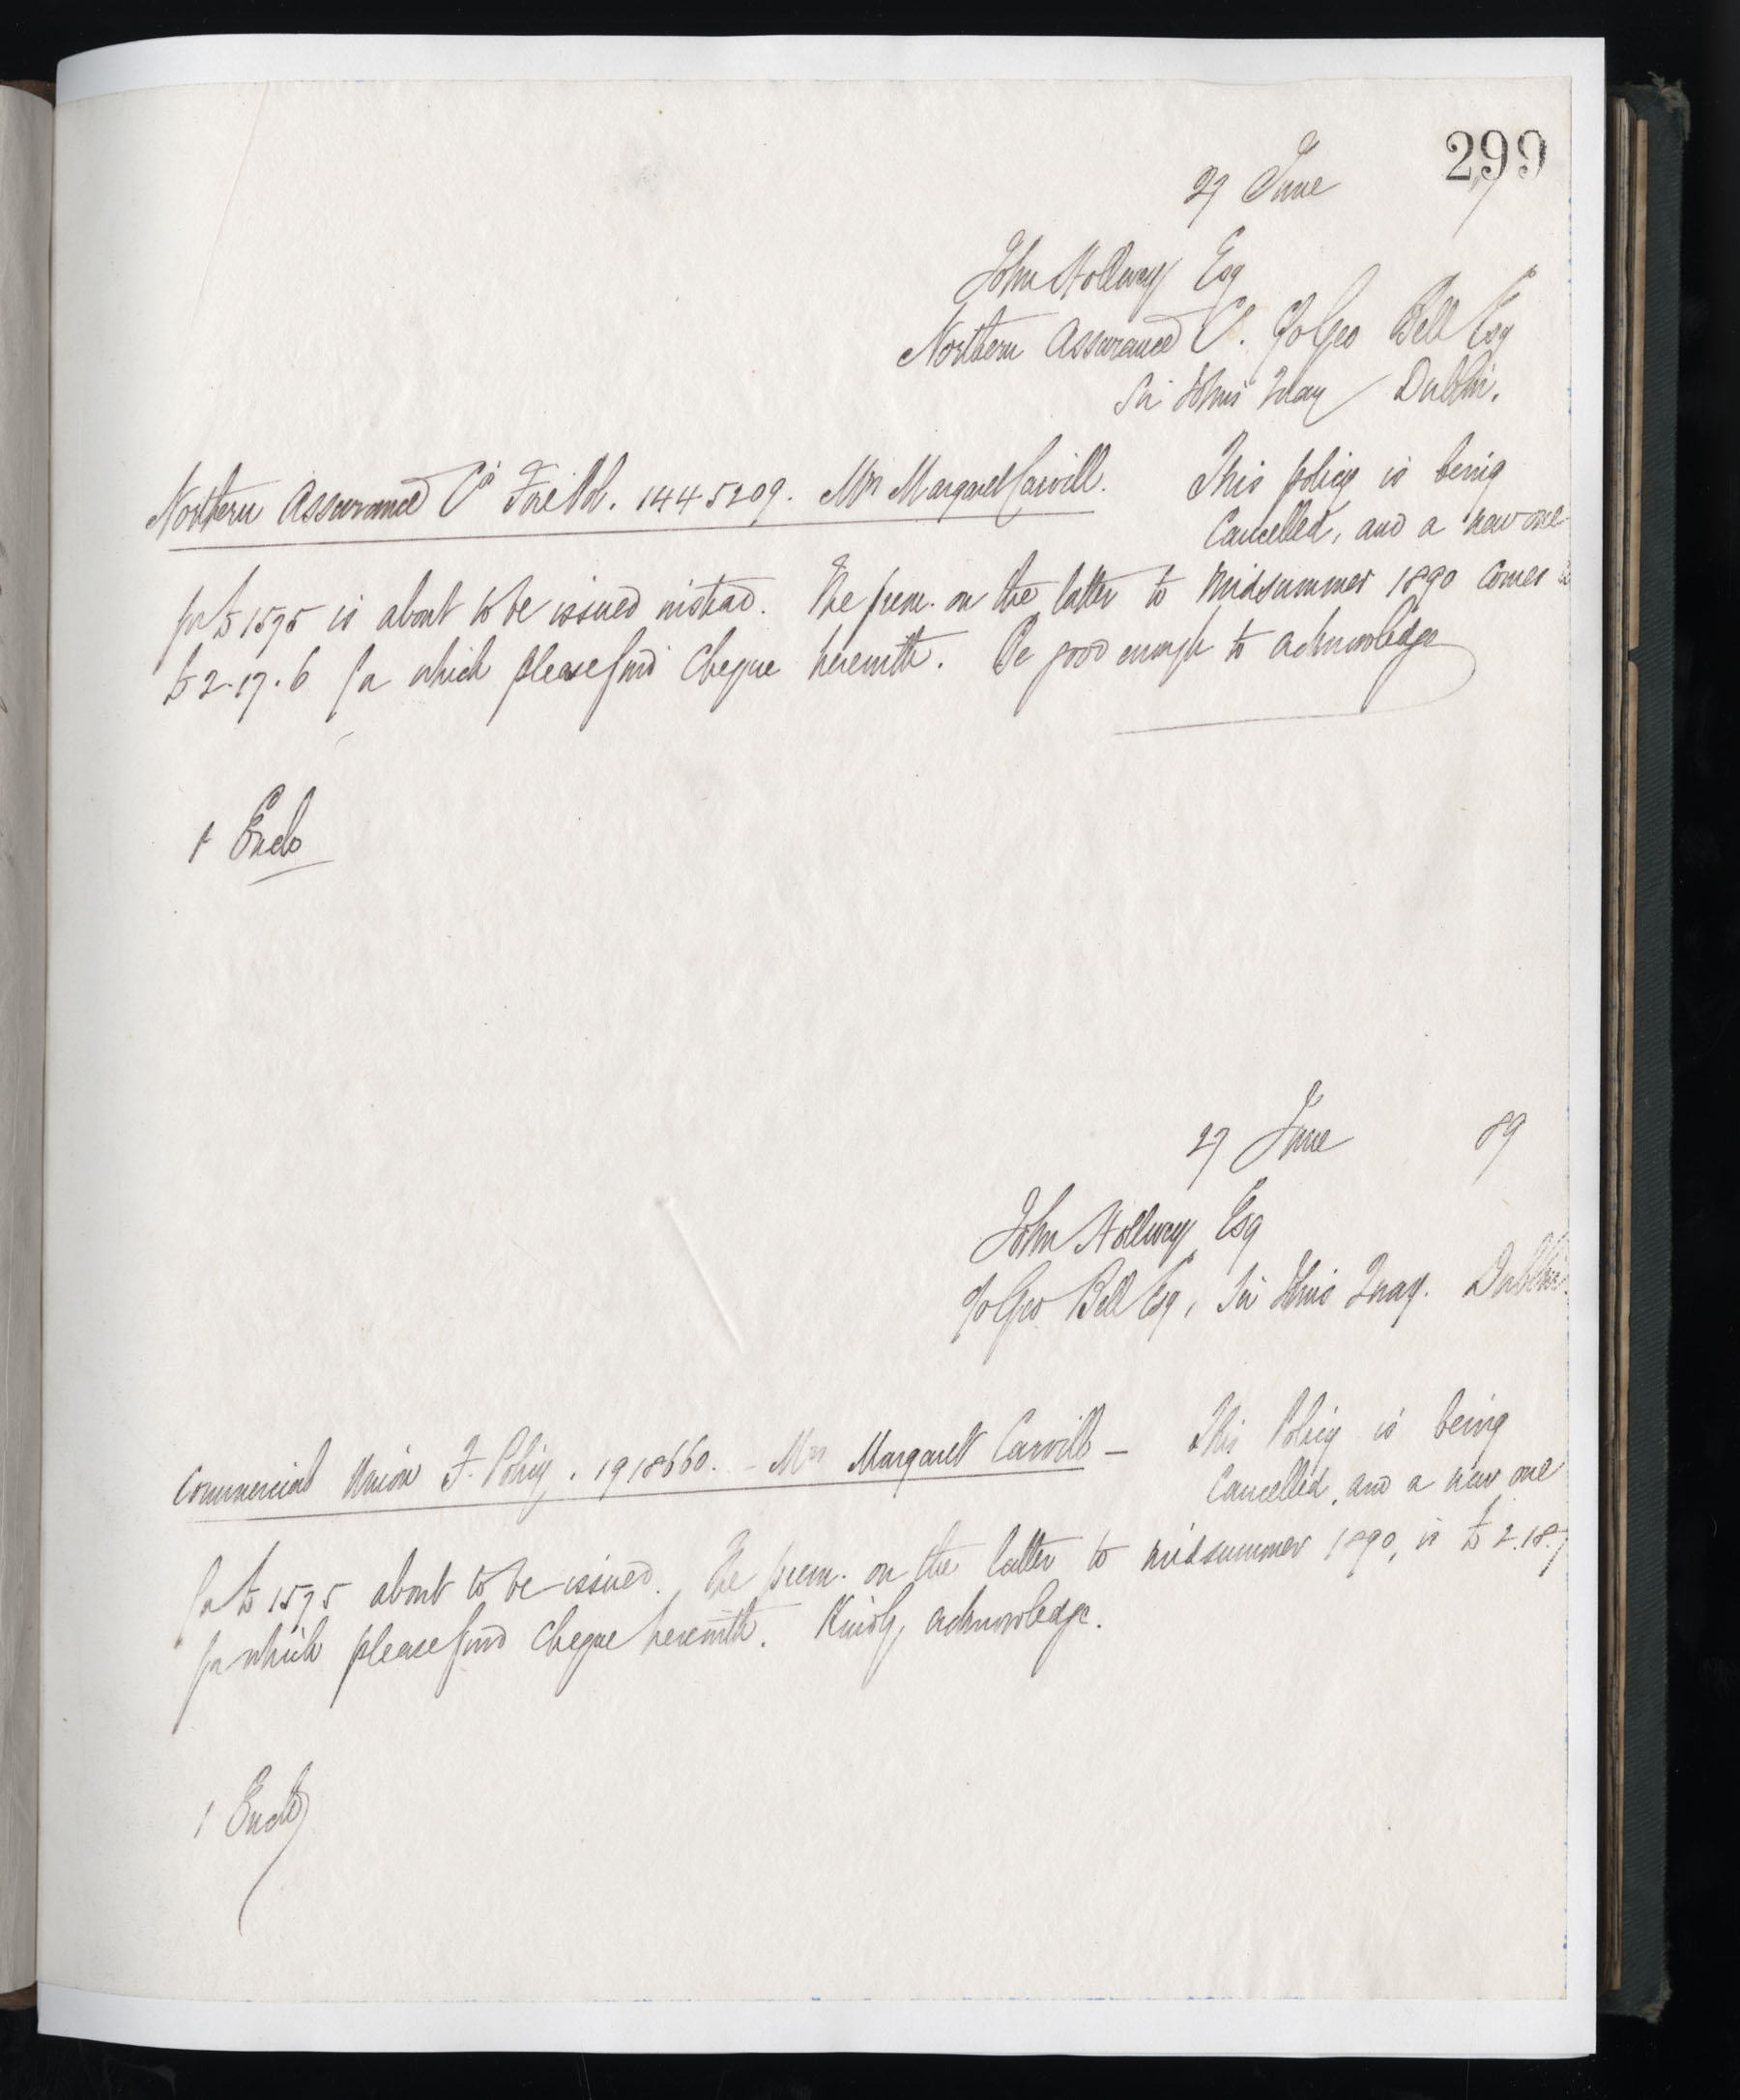 299
27 June
John Hollwey Esq
Northern Assurance Co. c/o Geo Bell Esq
Sir John's Quay Dublin.
Northern Assurance Co Fire Pol. 1445209. Mrs Margaret Carvill. This policy is being
Cancelled, and a new one
for £1575 is about to be issued instead. The prem. on the latter to Midsummer 1890 comes to
£2.17.6 for which please find Cheque herewith. Be good enough to acknowledge
1 Enclo
27 June 89
John Hollwey Esq
c/o Geo Bell Esq, Sir John's Quay. Dublin.
Commercial Union F. Policy. 1918660. - Mrs Margaret Carvill - This Policy is being
Cancelled, and a new one
for £1575 about to be issued. The prem. on the latter to midsummer 1890, is £2.18.7
for which please find Cheque herewith. Kindly acknowledge.
1 Enclo